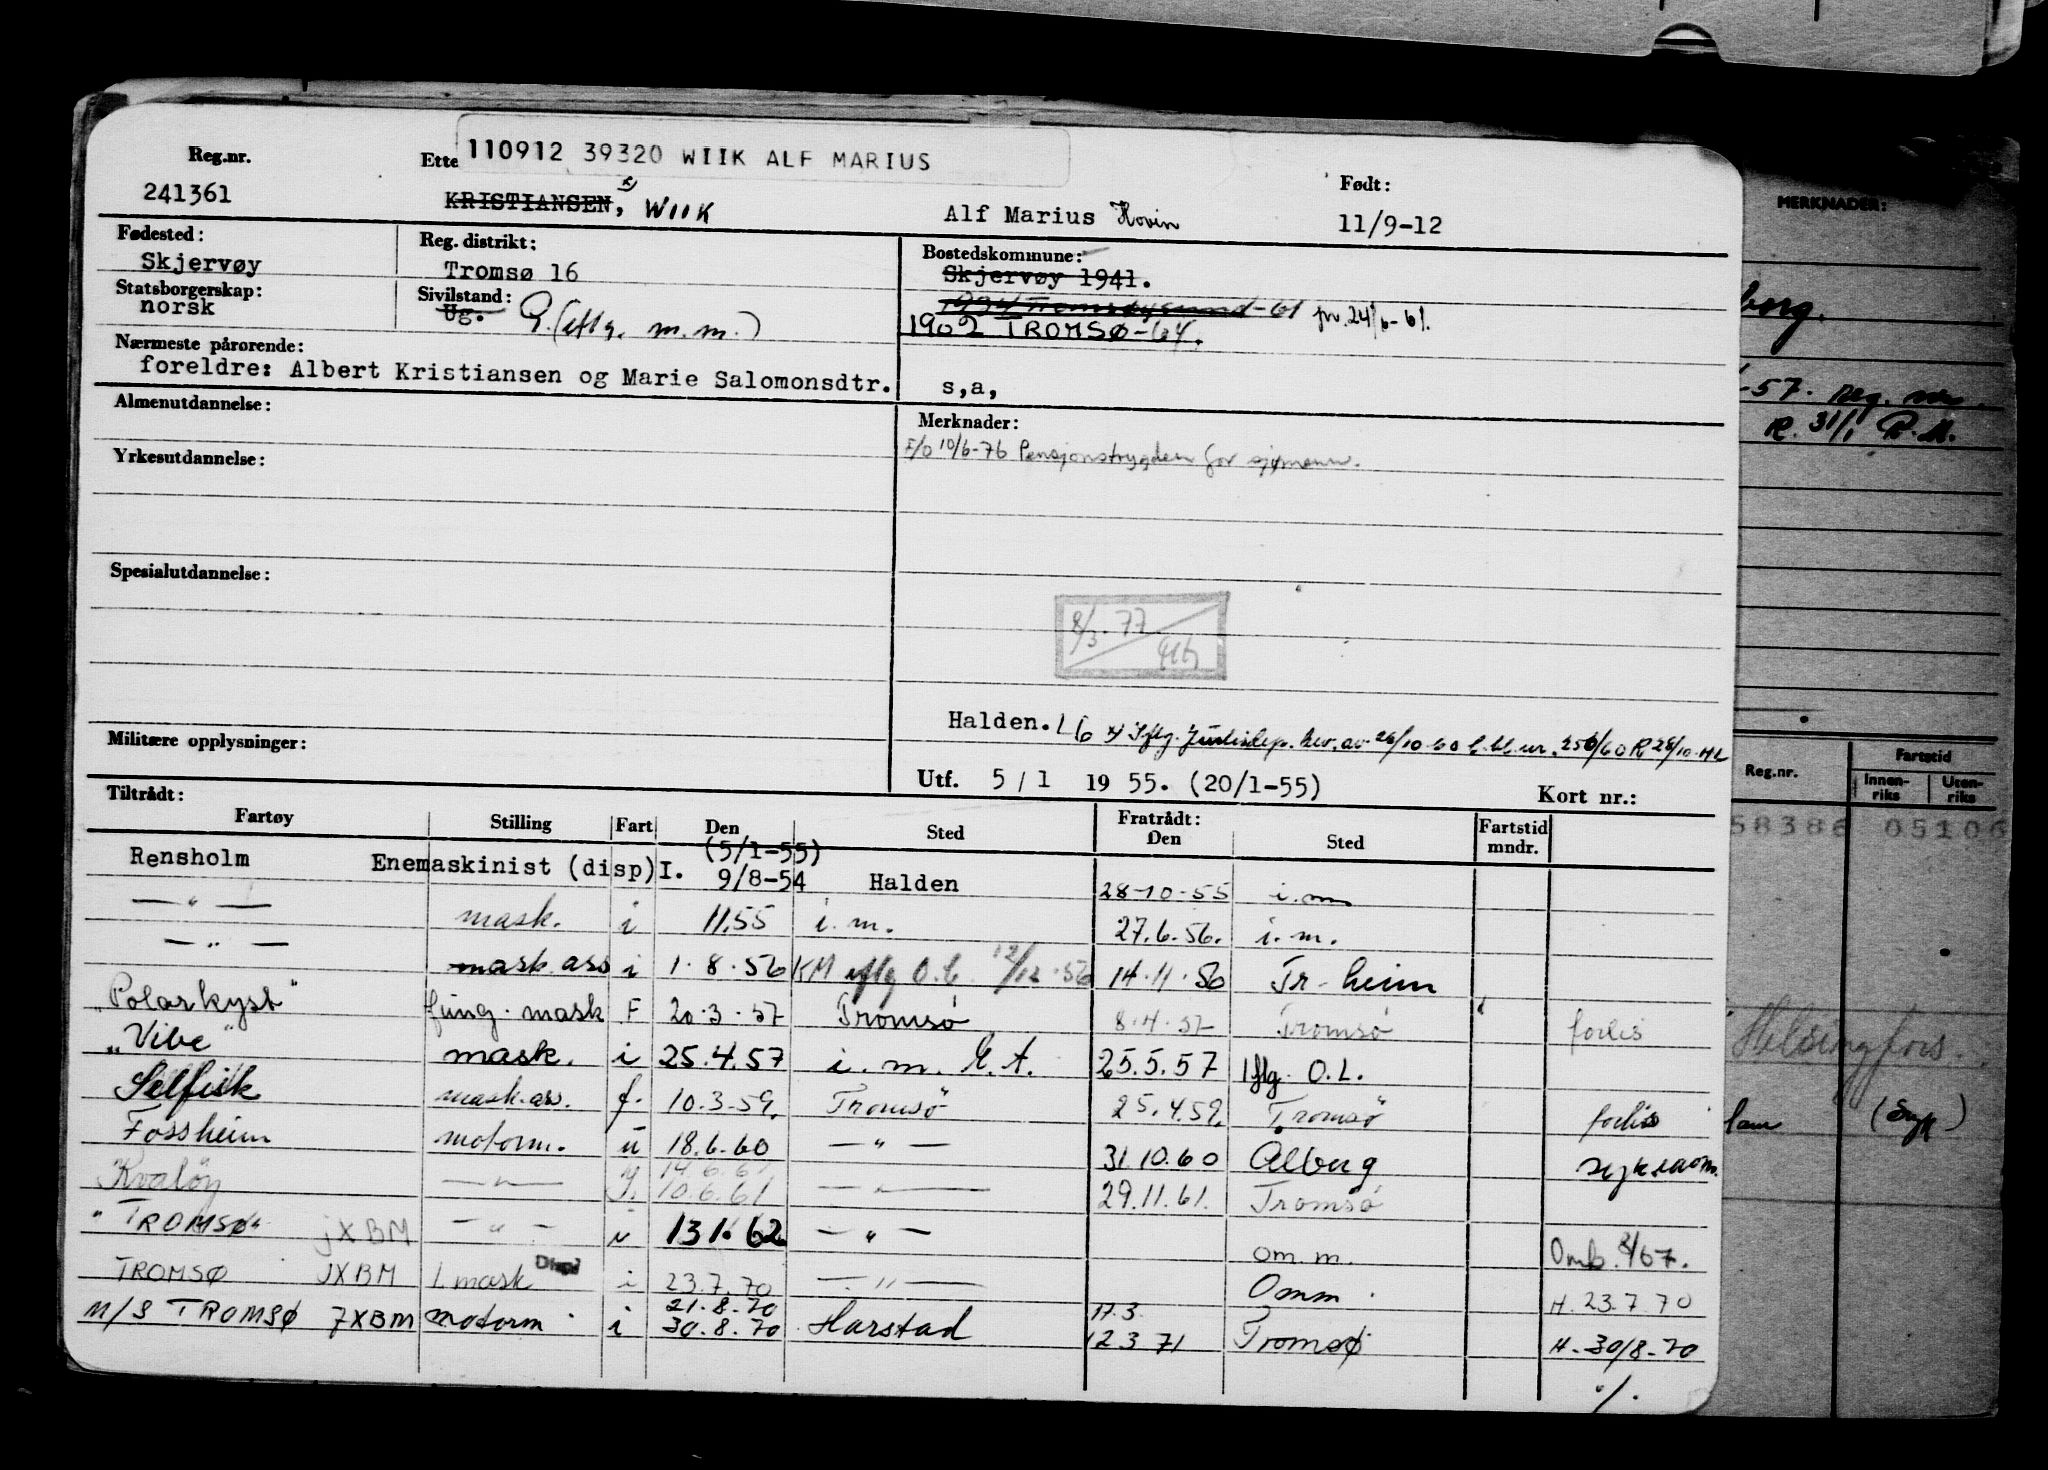 Reg.nr. Ette 110912 39320 WIIK ALF MARIUS Født:
241361 KRISTIANSEN, x) WIIK Alf Marius Hovin 11/9-12
Fødested: Reg. distrikt: Bostedskommune:
Skjervøy Tromsø 16 Skjervøy 1941.
Statsborgerskap: Sivilstand: 1934 Tromsøysund-61 pr. 24/6-61.
norsk Ug. G. (eflg. m.m.) 1902 TROMSØ-64.
Nærmeste pårørende:
foreldre: Albert Kristiansen og Marie Salomonsdtr. s,a,
Almenutdannelse: Merknader:
F/O 10/6-76 Pensjonstrygden for sjømenn.
Yrkesutdannelse:
Spesialutdannelse:
8/3-77
Halden. x) Iflg. Justisdep. bev. av 26/10-60 256/60 R 28/10-
Militære opplysninger:
Utf. 5/1 1955. (20/1-55) Kort nr.:
Tiltrådt: Fratrådt:
Fartøy Stilling Fart Den Sted Den Sted Fartstid mndr.
(5/1-55)
Rensholm Enemaskinist (disp) I. 9/8-54 Halden 28-10-55 i.m
— " — mask. i 11.55 i.m. 27.6.56. i.m.
— " — mask ass i 1.8.56 KM iflg O.L. 12/12.56 14.11.56 Tr-heim
"Polarkyst" fung. mask F 20.3.57 Tromsø 8.4.57 Tromsø forlis
"Vibe" mask. i 25.4.57 i.m. E.A. 25.5.57 Iflg. O.L.
Selfisk mask.ass. f. 10.3.59. Tromsö 25.4.59. Tromsö forlis
Fossheim motorm. u 18.6.60 — " — 31.10.60 Alborg sykdom.
14.6.61
Kvaløy — " — 10.6.61 — " — 29.11.61. Tromsø
"TROMSØ" JXBM — " — i 13.1.62 — " — om.m. Omb. 2/67.
TROMSØ JXBM 1.mask Disp. i 23.7.70 — " — Omm. H. 23.7.70
21.8.70 17.3
M/S TROMSØ JXBM motorm i 30.8.70 Harstad 12.3 71 Tromsø H-30/8-70
./.
MERKNADER:
borg.
-57. reg. nr.
R. 31/1
Reg.nr. Fartstid
Innenriks Utenriks
58386 05106
Helsingfors.